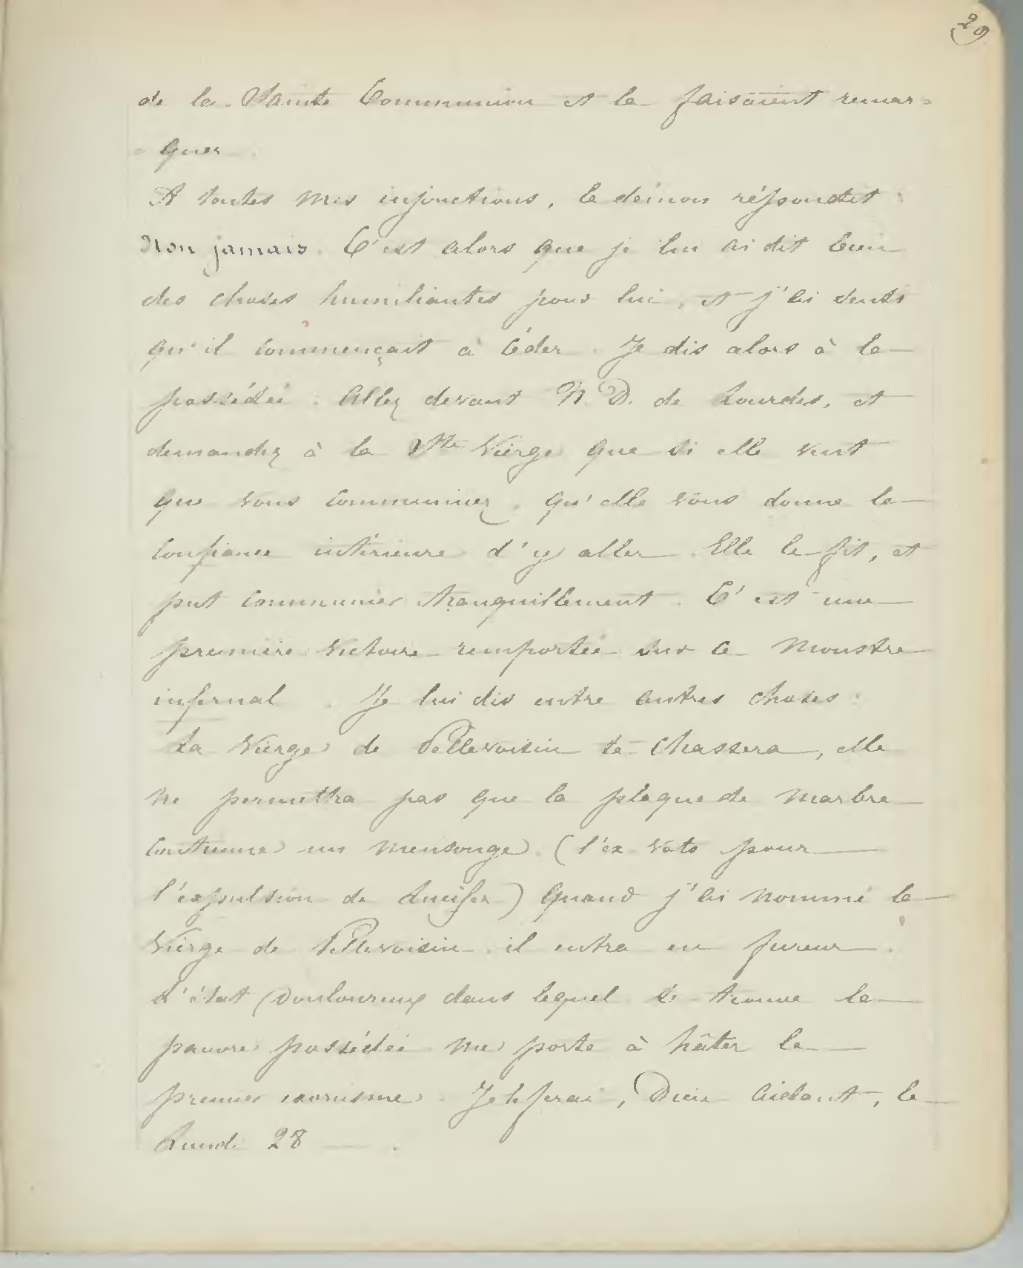 29
de la Sainte Communion et la faisaient remar=
quer.
A toutes mes injonctions, le démon répondit :
Non jamais. C'est alors que je lui ai dit bien
des choses humiliantes pour lui, et j'ai senti
qu'il commençait à céder. Je dis alors à la
possédée : Allez devant N. D. de Lourdes, et
demandez à la Ste Vierge que si elle veut
que vous communiiez, qu'elle vous donne la
confiance intérieure d'y aller. Elle le fit, et
put communier tranquillement. C'est une
première victoire remportée sur ce monstre
infernal. Je lui dis entre autres choses :
La Vierge de Pellevoisin te chassera, elle
ne permettra pas que la plaque de marbre
contienne un mensonge. (l'ex-voto pour
l'expulsion de Lucifer) Quand j'ai nommé la
Vierge de Pellevoisin il entra en fureur.
L'état douloureux dans lequel se trouve la
pauvre possédée me porte à hâter le
premier exorcisme. Je le ferai, Dieu aidant, le
Lundi 28.